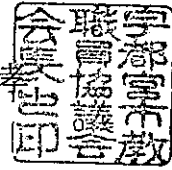 宇都宮市教
職員協議会
会長之印
孝